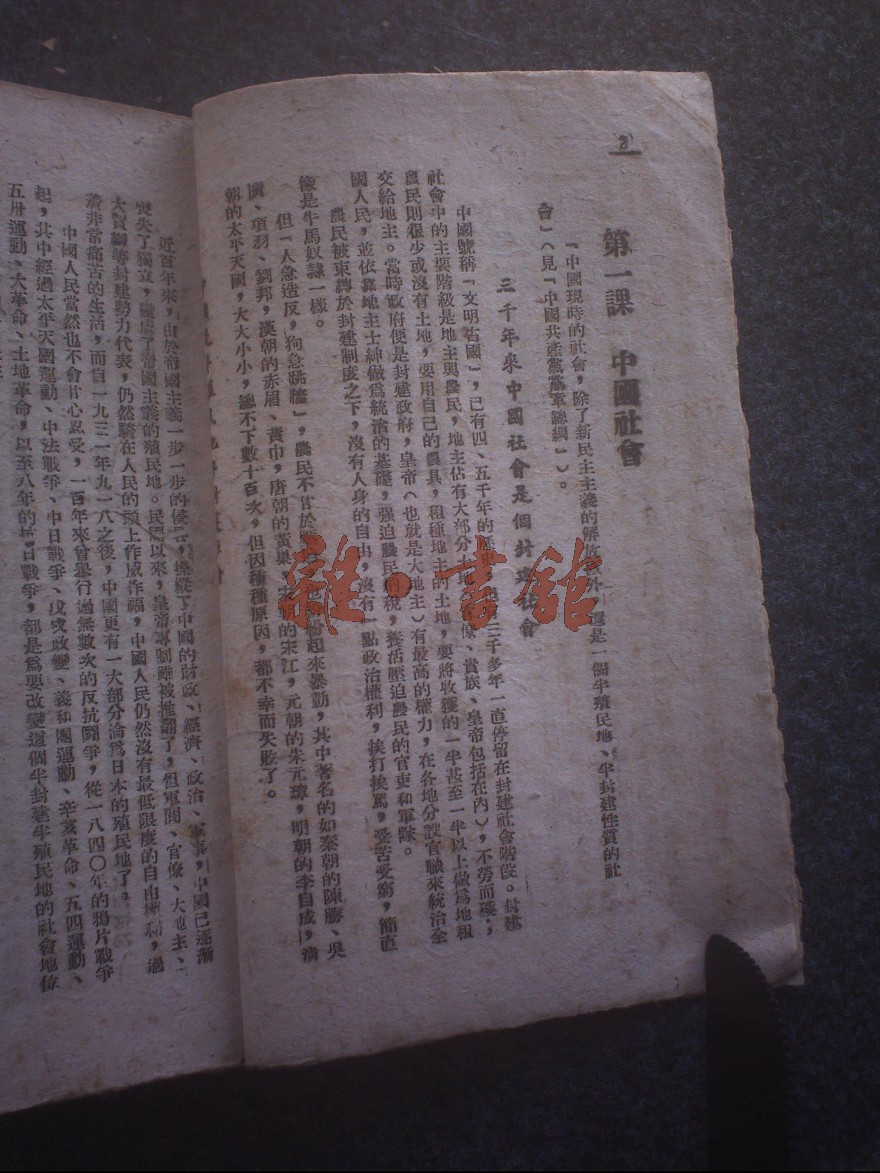 第一課　中國社會
「中國現時的社會，除了新民主主義的解放　外，還是一個半殖民地、半封建性質的社
會」（見「中國共產黨黨軍總綱」）。
三千年來中國社會是個封建社會
中國號稱「文明古國」，已有四、五千年的歷　三千多年一直停留在封建社會階段。封建
社會中的主要階級是地主與農民，地主佔有大部分土地　僚、貴族、皇帝包括在內），不勞而獲；
農民則很少或沒有土地，要用自己的農具，租種地主的土地，要將收獲的一半甚至一半以上做爲地租
交給地主。當時政府便是封建政府，皇帝（也就是大地主）有最高的權力，在各地分設官職來統治全
國人民，並依靠地主士紳做爲統治的基礎，强迫農民納稅，養活壓迫農民的官吏和軍隊。
農民被束縛於封建制度之下，沒有人身的自由，沒有一點政治權利，挨打挨罵，受苦受窮，簡直
像是牛馬奴隸一樣。
但「人急造反，狗急跳牆」，農民不甘於　紛起來暴動，其中著名的如秦朝的陳勝、吳
廣、項羽、劉邦，漢朝的赤眉、黃巾，唐朝的黃巢，宋朝的宋江，元朝的朱元璋，明朝的李自成，清
朝的太平天國，大大小小，總不下數十百次，但因種種原因，都不幸而失敗了。
近百年來，由於帝國主義一步一步的侵　，操縱了中國的財政、經濟、政治、軍事，中國已逐漸
喪失了獨立，變成了帝國主義的殖民地。民國以來，皇帝專制雖被推翻了，但軍閥、官僚、大地主、
大買辦等封建勢力代表，仍然騎在人民的頭上作威作福，中國人民仍然沒有最低限度的自由權利，過
着非常痛苦的生活，而自一九三一年九一八之後，中國更有一大部分淪爲日本的殖民地了。
中國人民當然也不會甘心忍受，一百年來曾舉行過無數次的反抗鬥爭，從一八四〇年的鴉片戰爭
起，其中經過太平天國運動、中法戰爭、中日戰爭、戊戌政變、義和團運動、辛亥革命、五四運動、
五卅運動、大革命、土地革命，以至八年的抗日戰爭，都是爲要改變這個半封建半殖民地的社會地位
雜·書館